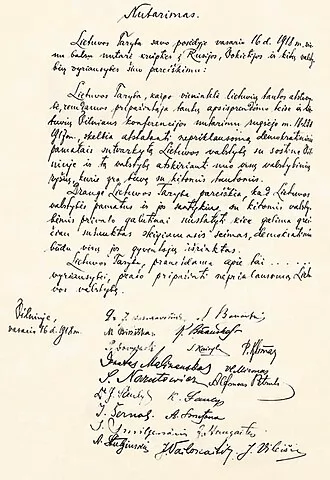 Nutarimas.
Lietuvos Taryba savo posėdyje vasario 16 d. 1918 m. vie-
nu balsu nutarė kreiptis į Rusijos, Vokietijos ir kitų valsty-
bių vyriausybes šiuo pareiškimu:
Lietuvos Taryba, kaipo vienintelė lietuvių tautos atstovy-
bė, remdamos pripažintąja tautų apsisprendimo teise ir lie-
tuvių Vilniaus konferencijos nutarimu rugsėjo m. 18-23 d.
1917 m., skelbia atstatanti nepriklausomą demokratiniais
pamatais sutvarkytą Lietuvos valstybę su sostine Vil-
niuje ir tą valstybę atskirianti nuo visų valstybinių
ryšių, kurie yra buvę su kitomis tautomis.
Drauge Lietuvos Taryba pareiškia, kad Lietuvos
valstybės pamatus ir jos santykius su kitomis valsty-
bėmis privalo galutinai nustatyti kiek galima grei-
čiau sušauktas steigiamasis seimas, demokratiniu
būdu visų jos gyventojų išrinktas.
Lietuvos Taryba, pranešdama apie tai . . . . . .
vyriausybei, prašo pripažinti nepriklausomą Lie-
tuvos valstybę.
Vilniuje,
vasario 16 d. 1918 m.
Dr. J. Basanavičius
M. Biržiška
K. Bizauskas
P. Klimas
Donatas Malinauskas
Vl. Mironas
S. Narutowicz
Alfonsas Petrulis
K. Šaulys
J. Šernas
A. Smetona
J. Vileišis